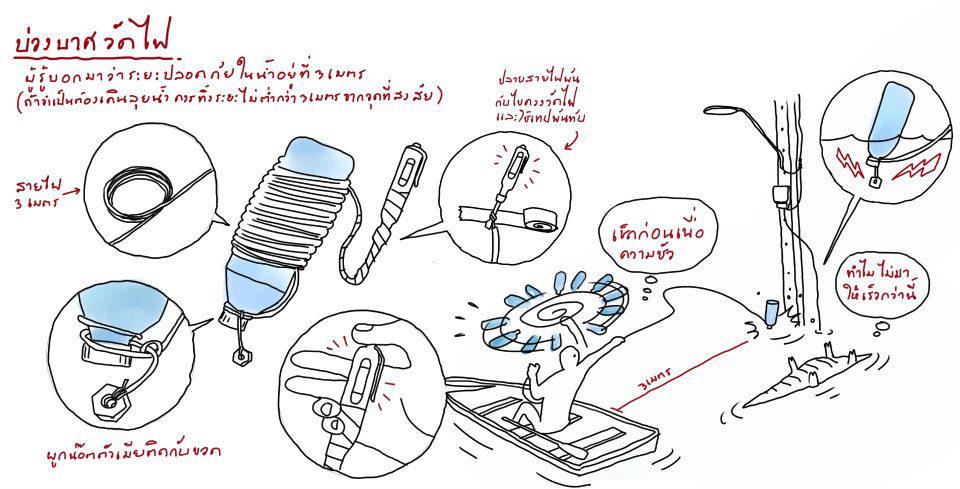 บ่วงบาศวัดไฟ
ผู้รู้บอกมาว่าระยะปลอดภัยในน้ำอยู่ที่ 3 เมตร
(ถ้าจำเป็นต้องเดินลุยน้ำ ควรทิ้งระยะไม่ต่ำกว่า 3 เมตร จากจุดที่สงสัย)
ปลายสายไฟพัน
กับไขควงวัดไฟ
และใช้เทปพันทับ
สายไฟ
3 เมตร
เช็กก่อนเพื่อ
ความชัว
ทำไมไม่มา
ให้เร็วกว่านี้
3 เมตร
ผูกน๊อตตัวเมียติดกับขวด